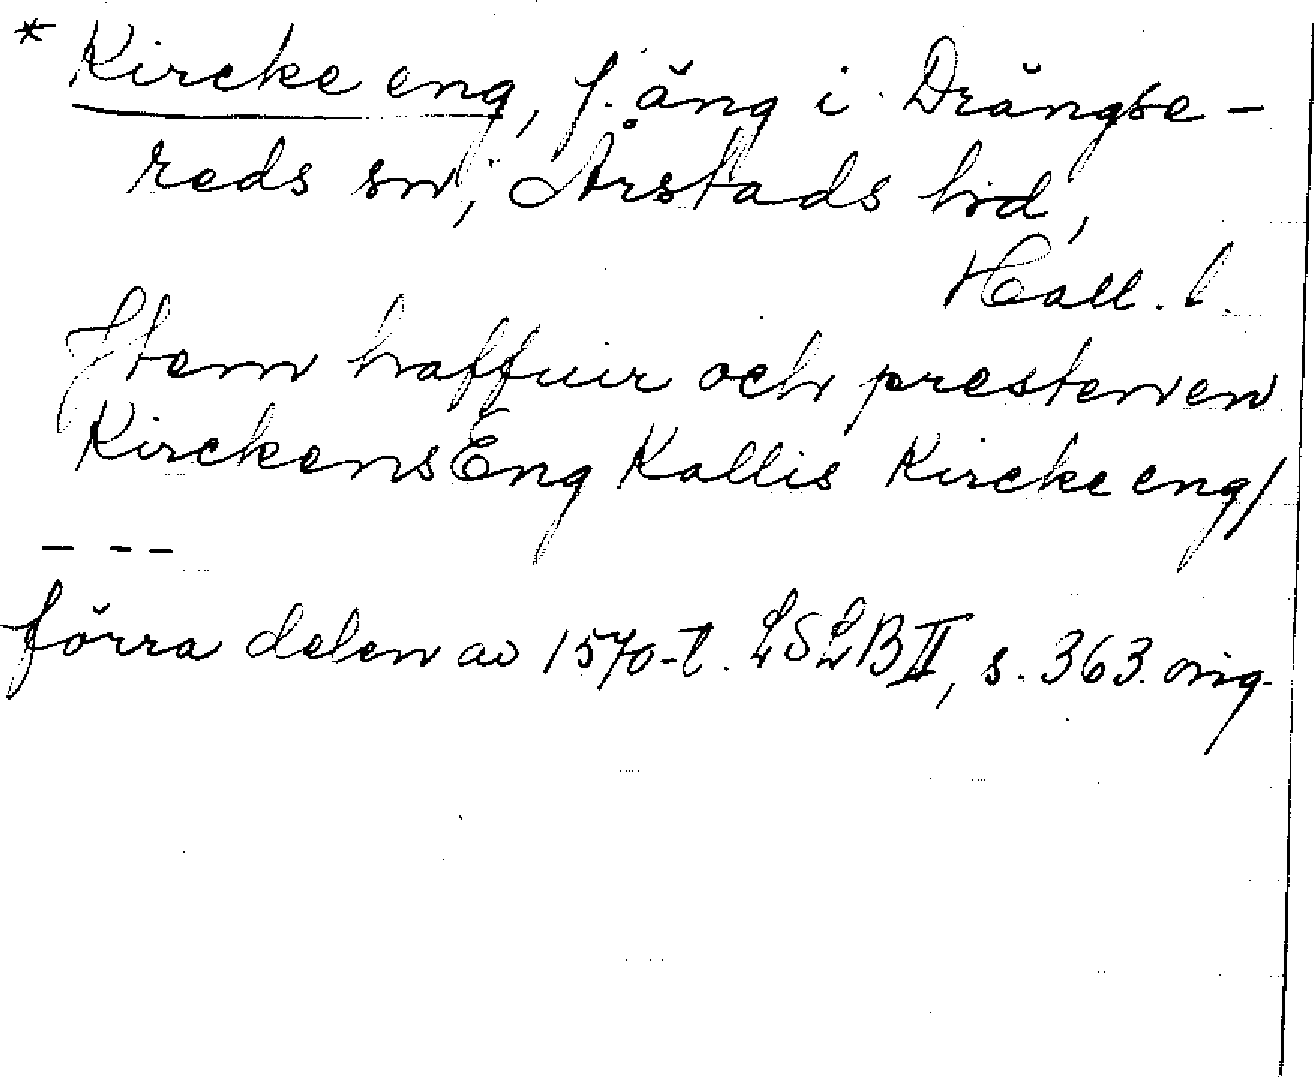 * Kircke eng, f. äng i Drängse-
reds sn, Årstads hd,
Hall. l.
Item haffuir och presten en
Kirckens Eng Kallis Kircke eng/
- - -
förra delen av 1570-t. LSLB II, s. 363. orig.